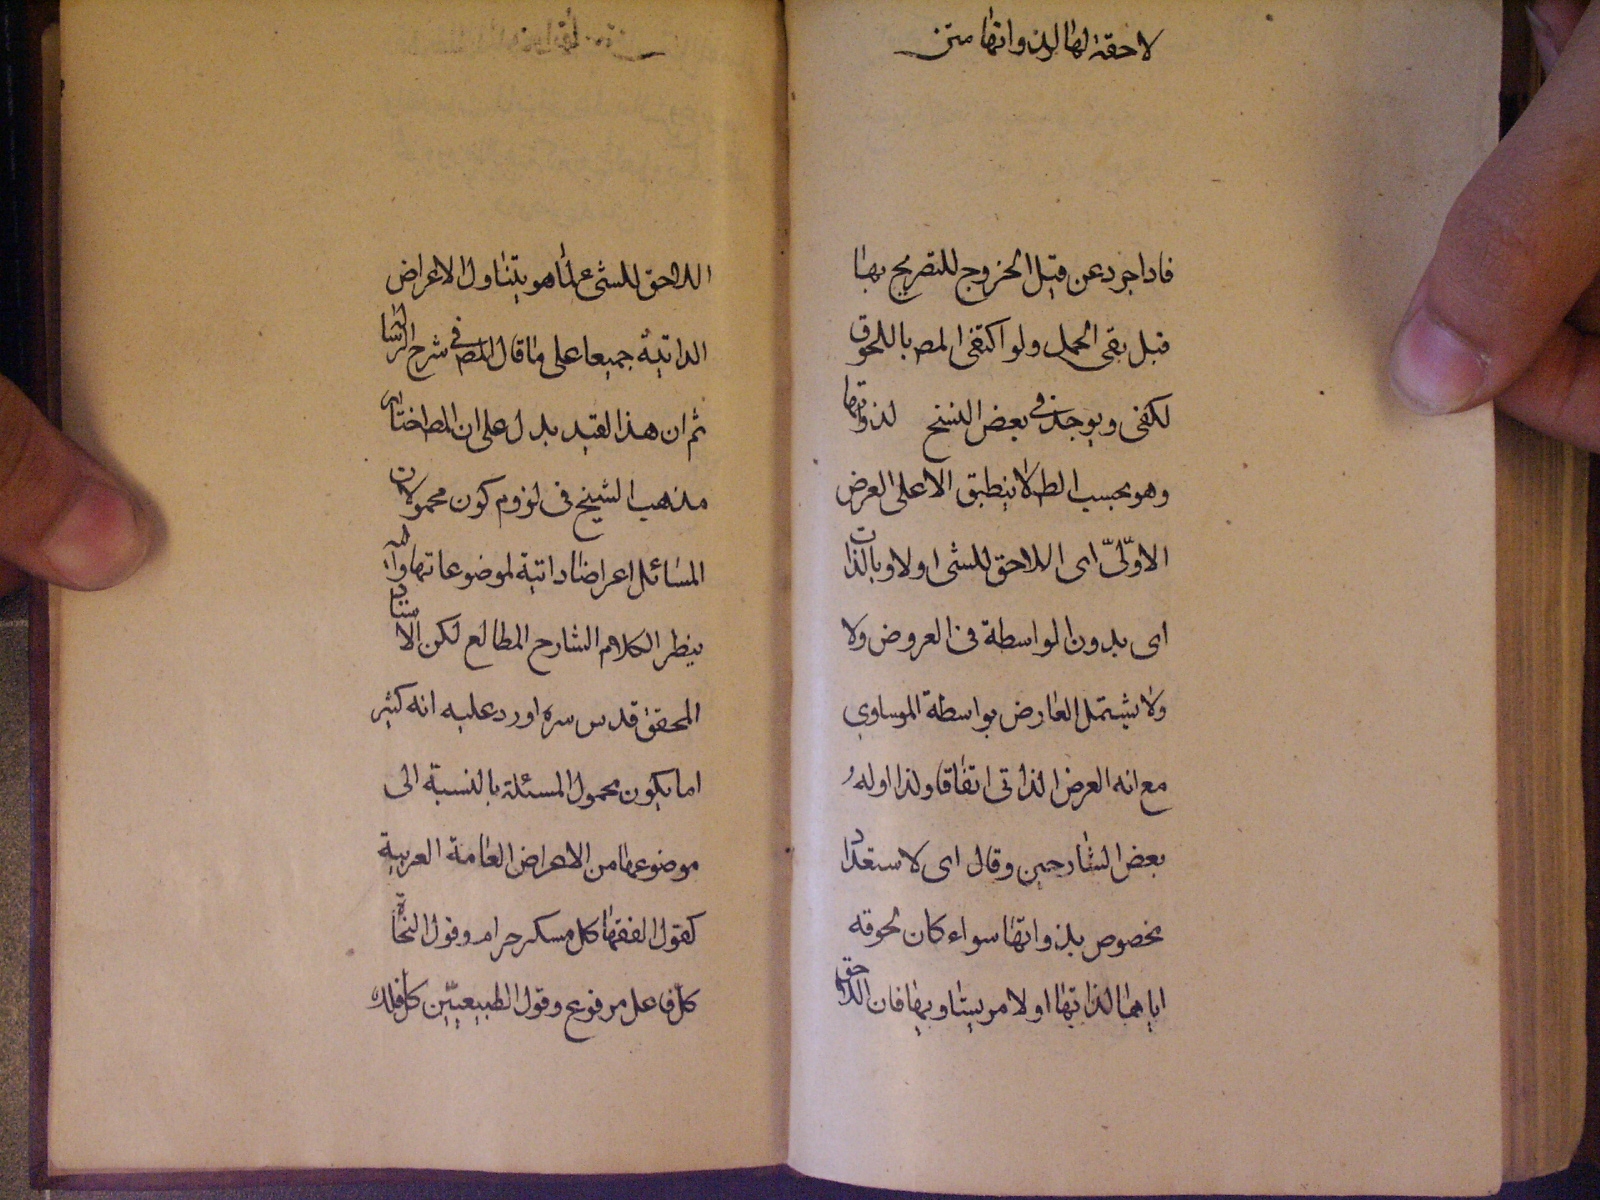 لاحقة لها لذواتها متن
فاذا جرد عن قبل الخروج للتصريح بها
قبل بقى الحمل ولو اكتفى المص باللحوق
لكفى ويوجد فى بعض النسخ لذواتها
وهو بحسب الظ لا ينطبق الا على العرض
الاوّلىّ اى اللاحق للشئ اولا وبالذات
اى بدون الواسطة فى العروض ولا
ولا يشتمل العارض بواسطة المساوى
مع انه العرض الذاتى اتفاقا ولذا اوله
بعض الشارحين وقال اى لاستعداد
مخصوص بذواتها سواء كان لحوقه
اياها لذاتها او لامر يساويها فان اللاحق
اللاحق للشئ لما هو يتناول الاعراض
الذاتية جميعا على ما قال المص فى شرح الاشارات
ثم ان هذا القيد يدل على ان المص اختار
مذهب الشيخ فى لزوم كون محمولات
المسائل اعراضا ذاتية لموضوعاتها واليه
ينظر الكلام الشارح المطالع لكن الاستاد
المحقق قدس سره اورد عليه انه كثير
اما يكون محمول المسئلة بالنسبة الى
موضوعها من الاعراض العامة الغريبة
كقول الفقها كل مسكر حرام وقول النحاة
كل فاعل مرفوع وقول الطبيعيّين كل فلك